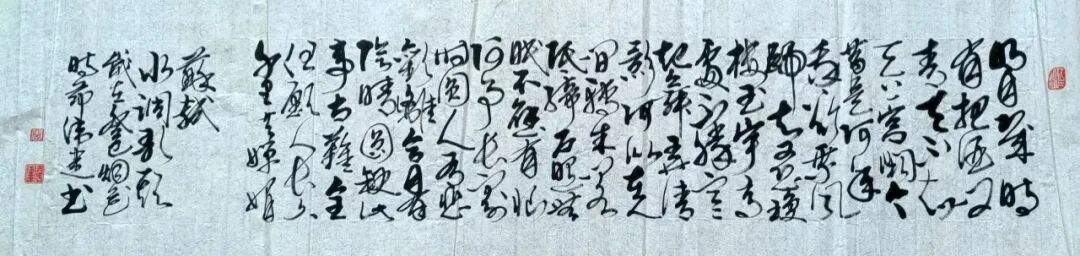 明月幾時
有把酒问
青天不知
天上宫阙今
昔是何年
我欲乘风
归去又恐琼
楼玉宇高
处不勝寒
起舞弄清
影何似在人
间转朱阁
低绮户照无
眠不應有恨
何事长向别
时圆人有悲
歡離合月有
陰晴圆缺此
事古難全
但願人长久
千里共嬋娟
蘇軾
水调歌头
歲在癸
時节 書